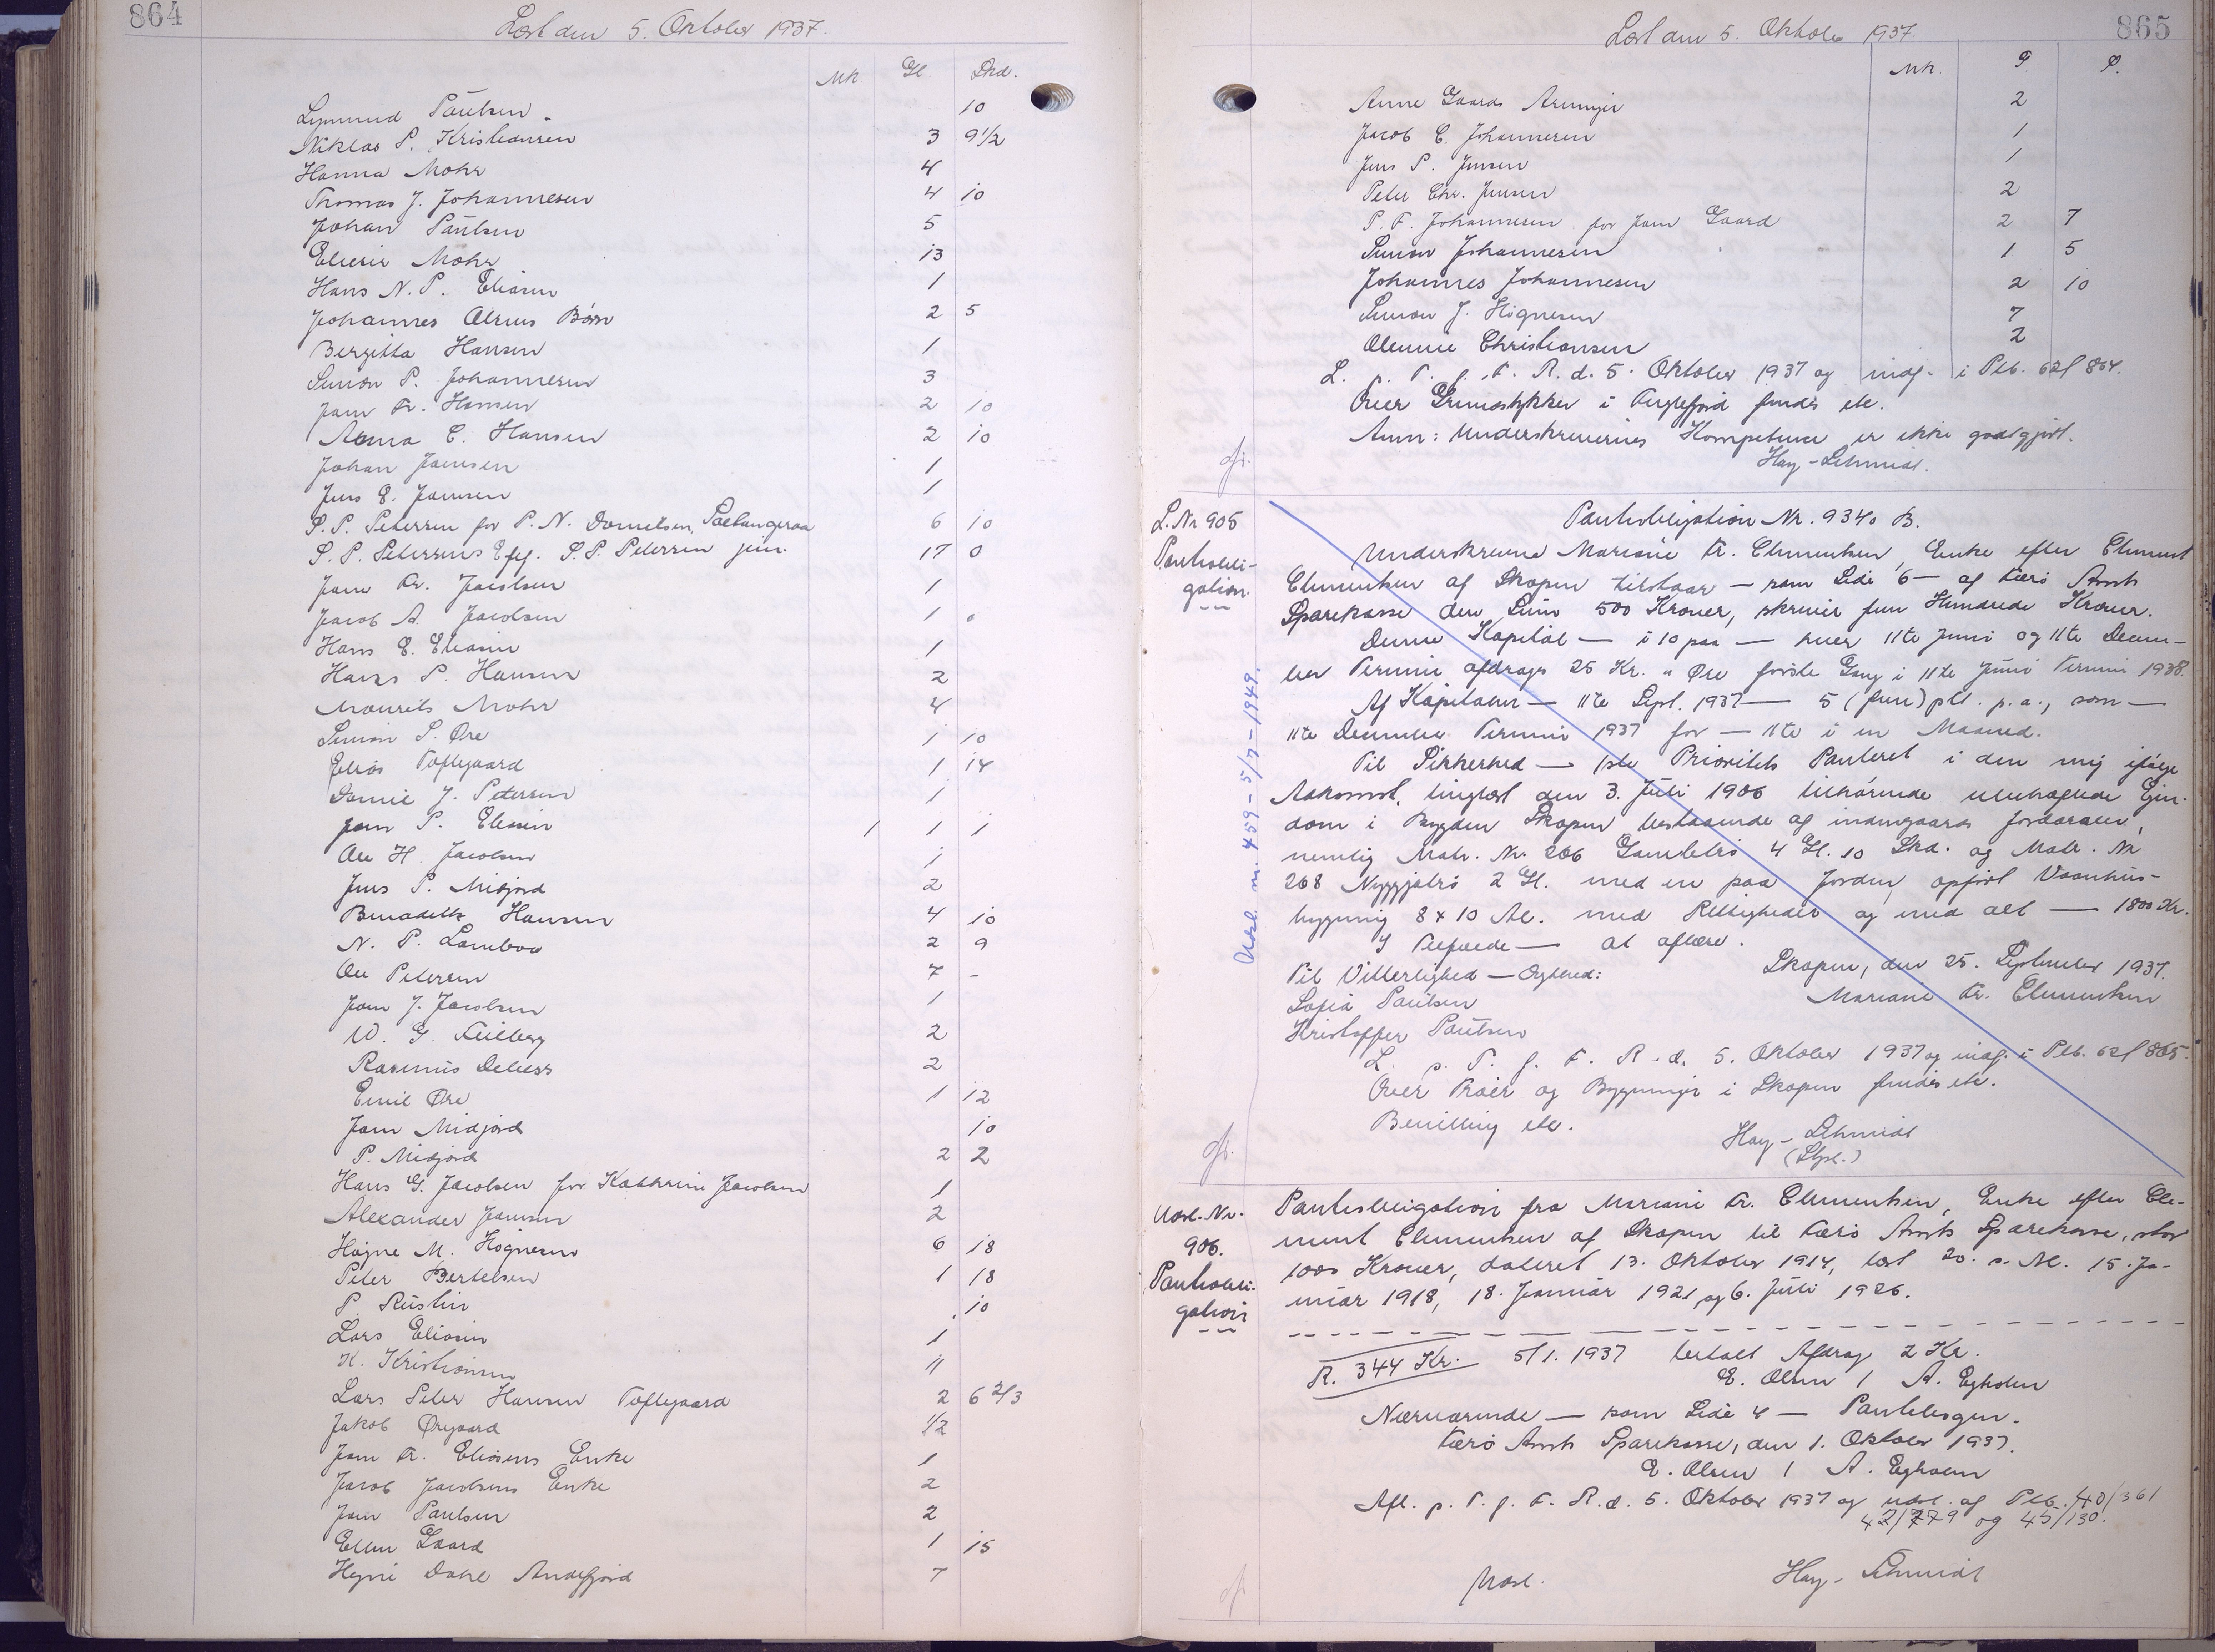 864
Læst den 5. Oktober 1937.
Mk Gl. Skd.
Paulsen 10
Niklas P. Kristiansen 3 9 1/2
Hanna Mohr 4
Thomas J. Johannesen 4 10
Johan Paulsen 5
Mohr 13
Hans N. P. Eliasen 1
Johannes Børn 2 5
Bergitta Hansen 1
Simon P. Johannesen 3
Joen Fr. Hansen 2 10
Anna C. Hansen 2 10
Johan Joensen 1
Jens E. Joensen 1
S. P. Petersen for P. N. Danielsen, 6 10
S. P. Petersens Eftf. S. P. Petersen jun. 17 0
Joen Kr. Jacobsen 1
Jacob A. Jacobsen 1 0
Hans E. Eliasen 1
Hans P. Hansen 2
Mourits Mohr 4
Simon S. Øre 1 10
Elias Toftegaard 1 14
Daniel J. Petersen 1
Joen P. Eliasen 1 1 1
Ole H. Jacobsen 1
Jens P. Midjord 2
Benadikte Hansen 4 10
N. P. Lamboe 2 9
Ole Petersen 7 -
Joen J. Jacobsen 1
W. G. Feilberg 2
Rasmus Debess 2
Emil Øre 1 12
Joen Midjord 10
P. Midjord 2 2
Hans G. Jacobsen for Kathrine Jacobsen 1
Alexander Joensen 2
Høgne M. Høgnesen 6 18
Peter Bertelsen 1 18
P. Rustin 10
Lars Eliasen 1
K. Kristiansen 11
Lars Peter Hansen Toftegaard 2 6 2/3
Jakob Øregaard 1/2
Joen Fr. Eliasens Enke 1
Jacob Jacobsens Enke 2
Joen Paulsen 2
Ellen Gaard 1 15
Dahl Andefjord 7
865
Læst den 5. Oktober 1937.
Mk. G. S.
Anne Gaards Arvinger 2
Jacob C. Johannesen 1
Jens P. Jensen 1
Peter Chr. Jensen 2
P. F. Johannesen for Joen Gaard 2 7
Simon Johannesen 1 5
Johannes Johannesen 2 10
Simon J. Høgnesen 7
Olevine Christiansen 2
L. p. T. f. F. R. d. 5. Oktober 1937 og indf. i Ptb. 62f 864.
Over Grundstykker i Fuglefjord findes etc.
Anm: Underskrivernes Kompetence er ikke godtgjort.
Hay-Schmidt.
L. Nr 905
Pantobli-
gation
Pantobligation Nr. 9340 B.
Underskrevne Mariane Fr. Clementsen, Enke efter Clement
Clementsen af Skopen tilstaar — som Side 6 — af Færø Amts
Sparekasse den Sum 500 Kroner, skriver fem Hundrede Kroner.
Denne Kapital — i 10 paa — hver 11te Juni og 11te Decem-
ber Termin afdrages 25 Kr. " Øre første Gang i 11te Juni Termin 1938.
Af Kapitalen — 11te Sept. 1937 — 5 (fem) pCt. p.a., som —
11te December Termin 1937 for — 11te i en Maaned.
Til Sikkerhed — 1ste Prioritets Panteret i den mig ifølge
Adkomst, tinglæst den 3. Juli 1906 tilhørende ubehæftede Ejen-
dom i Bygden Skopen bestaaende af indengaards Jordarealer,
nemlig Matr. Nr. 206 Gambletrø 4 Gl. 10 Skd. og Matr. Nr
268 Nyggjatrø 2 Gl. med en paa Jorden opført Vaanhus-
bygning 8 x 10 Al. med Rettigheder og med alt — 1800 Kr.
I Tilfælde — at aflæse.
Skopen, den 25. September 1937.
Mariane Fr. Clementsen
Til Vitterlighed — Ægthed:
Sofia Paulsen
Kristoffer Paulsen
L. p. T. f. F. R. d. 5. Oktober 1937 og indf. i Ptb. 62f 865.
Over Trøer og Bygninger i Skopen findes etc.
Bevilling etc.
Hay-Schmidt
(Stpl.)
Udsl. nr. 459 - 5/7 - 1949.
Udsl. Nr.
906.
Pantobli-
gation
Pantobligation fra Mariane Fr. Clementsen, Enke efter Cle-
ment Clementsen af Skopen til Færø Amts Sparekasse, stor
1000 Kroner, dateret 13. Oktober 1914, læst 20. s. M. 15. Ja-
nuar 1918, 18. Januar 1921, og 6. Juli 1926.
R. 344 Kr. 5/1. 1937 betalt Afdrag 2 Kr.
E. Olsen / A. Egholm
Nærværende — som Side 4 — Pantebogen.
Færø Amts Sparekasse, den 1. Oktober 1937.
E. Olsen / A. Egholm
Afl. p. T. f. F. R. d. 5. Oktober 1937 og udsl. af Ptb. 40/361
42/779 og 45/130.
Udsl.
Hay-Schmidt